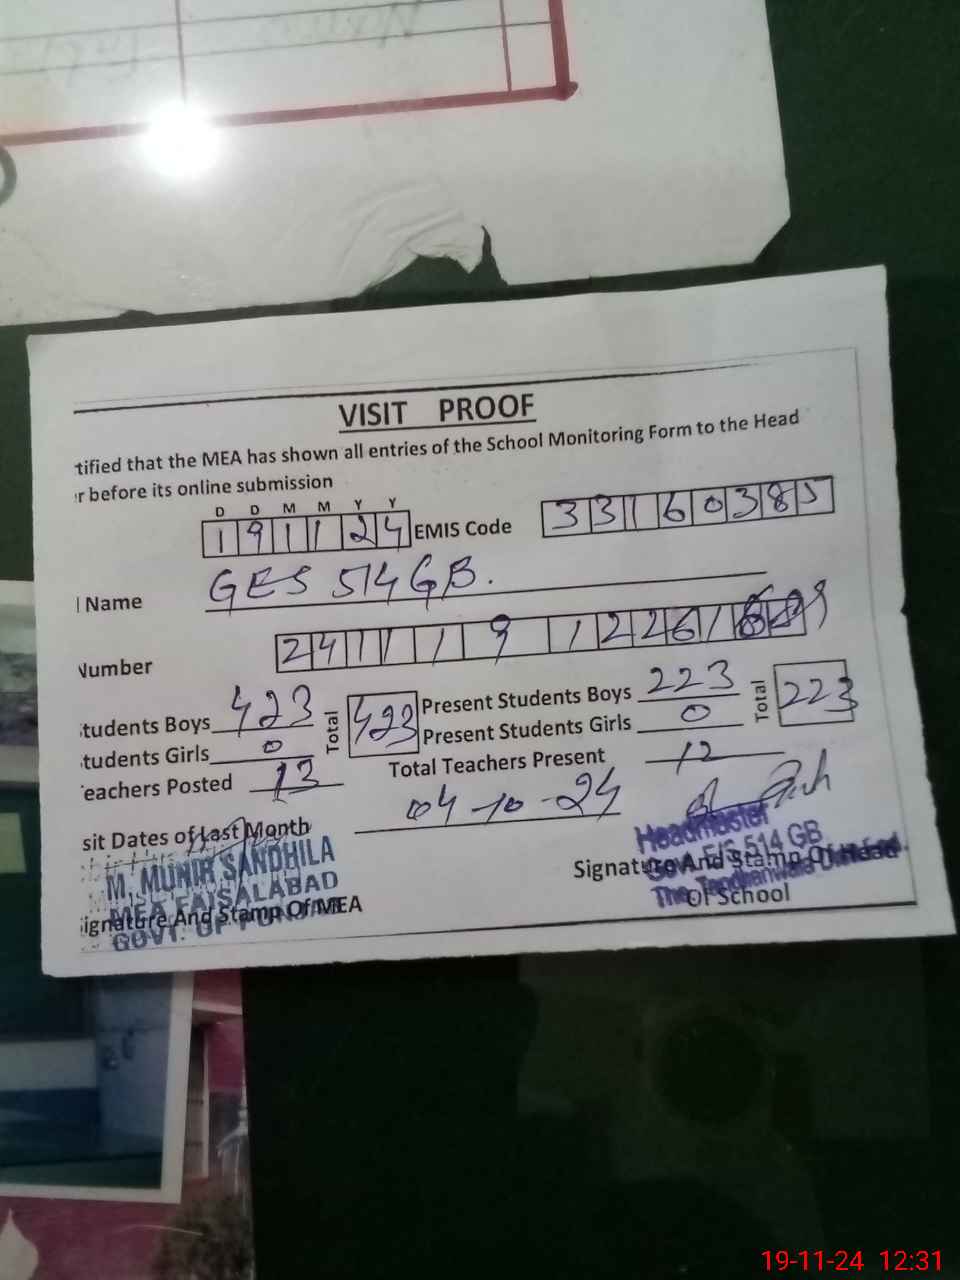 VISIT PROOF
tified that the MEA has shown all entries of the School Monitoring Form to the Head
r before its online submission
D D M M Y Y
191124 EMIS Code 33160385
l Name GES 514 GB.
Number 24111912261
tudents Boys 423 Total 423 Present Students Boys 223 Total 223
tudents Girls 0 Present Students Girls 0
eachers Posted 13 Total Teachers Present 12
sit Dates of Last Month 04-10-24
M. MUNIR SANDHILA
MEA FAISALABAD
GOVT. OF PUNJAB
ignature And Stamp Of MEA
Headmaster
Govt. E/S 514 GB
Signature And Stamp Of Head
Of School
19-11-24 12:31